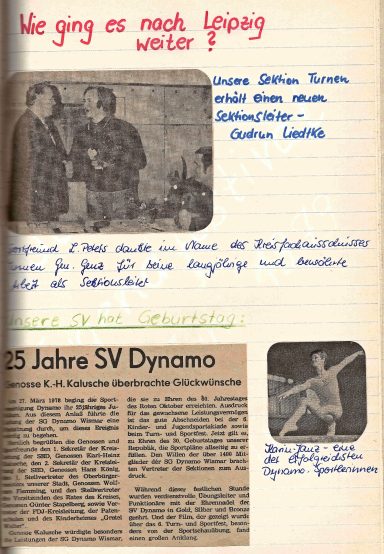 Wie ging es nach Leipzig
weiter?
Unsere Sektion Turnen
erhält einen neuen
Sektionsleiter -
Gudrun Liedtke
L. Peters dankte im Name des Kreisfachausschusses
für seine langjährige und bewährte
als Sektionsleiter
Unsere SV hat Geburtstag:
25 Jahre SV Dynamo
Genosse K.-H. Kalusche überbrachte Glückwünsche
Am 27. März 1978 beging die Sport-
vereinigung Dynamo ihr 25jähriges Ju-
Aus diesem Anlaß führte die
tung der SG Dynamo Wismar eine
durch, um dieses Ereignis
zu begehen.
begrüßten die Genossen und
freunde den 1. Sekretär der Kreis-
der SED, Genossen Karl-Heinz
Kalusche, den 2. Sekretär der Kreislei-
der SED, Genossen Hans König,
1. Stellvertreter des Oberbürger-
unserer Stadt, Genossen Wolf-
Flemming, und den Stellvertreter
Vorsitzenden des Rates des Kreises,
Genossen Günter Stapelberg, sowie Ver-
der FDJ-Kreisleitung, der Paten-
und des Kinderheimes „Gretel
Walter“.
Genosse Kalusche würdigte besonders
die Leistungen der SG Dynamo Wismar,
die sie zu Ehren des 60. Jahrestages
des Roten Oktober erreichten. Ausdruck
für das gewachsene Leistungsvermögen
ist das gute Abschneiden bei der 6.
Kinder- und Jugendspartakiade sowie
beim Turn- und Sportfest. Jetzt gilt es,
zu Ehren des 30. Geburtstages unserer
Republik, die Sportpläne allseitig zu er-
füllen. Den Willen der über 1400 Mit-
glieder der SG Dynamo Wismar brach-
ten Vertreter der Sektionen zum Aus-
druck.
Während dieser festlichen Stunde
wurden verdienstvolle Übungsleiter und
Funktionäre mit der Ehrennadel der
SV Dynamo in Gold, Silber und Bronze
geehrt. Und der Film, der gezeigt wurde
über das 6. Turn- und Sportfest, beson-
ders von der Sportschauübung, fand
einen großen Anklang.
Karin Janz - eine
der erfolgreichsten
Dynamo-Sportlerinnen